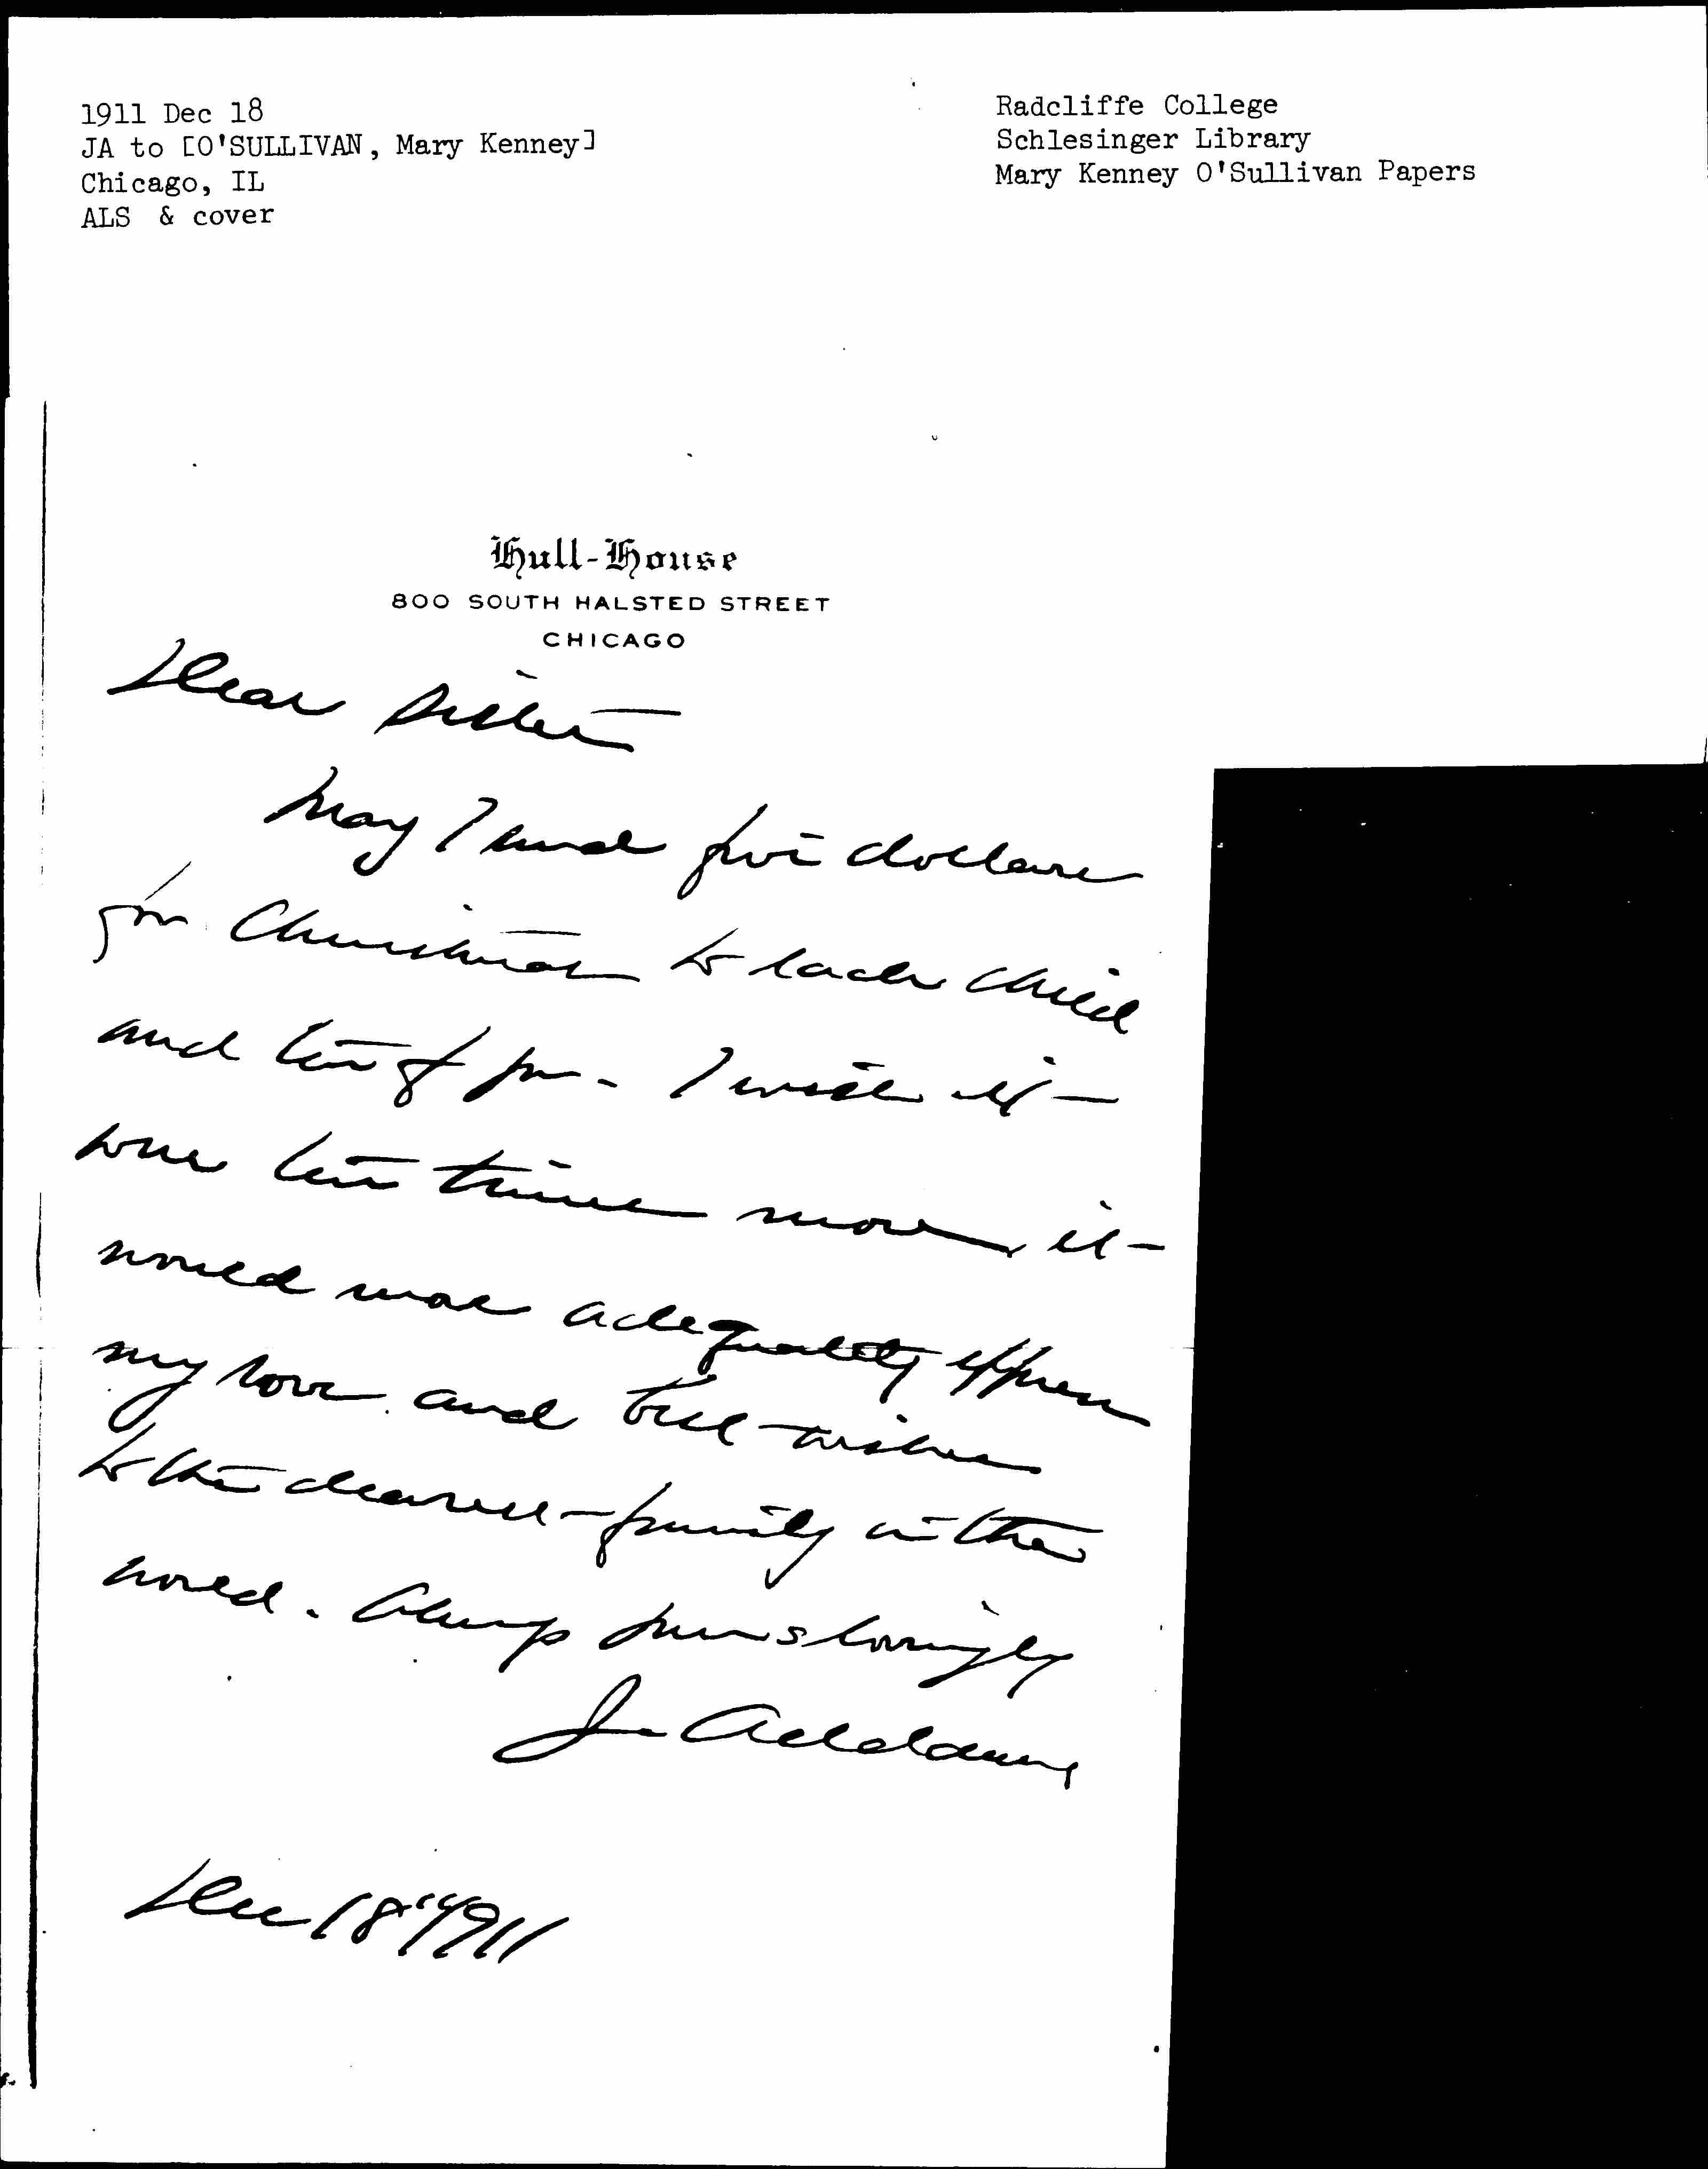 1911 Dec 18
JA to [O'SULLIVAN, Mary Kenney]
Chicago, IL
ALS & cover
Radcliffe College
Schlesinger Library
Mary Kenney O'Sullivan Papers
Hull-House
800 SOUTH HALSTED STREET
CHICAGO
Dear Sister
May I send five dollars
for Christmas to each child
and ten of you - I wish it
were ten times more, it
would more adequately express
my love and best wishes
to the dearest family in the
world. Always yours lovingly
J. Addams
Dec 18" 1911